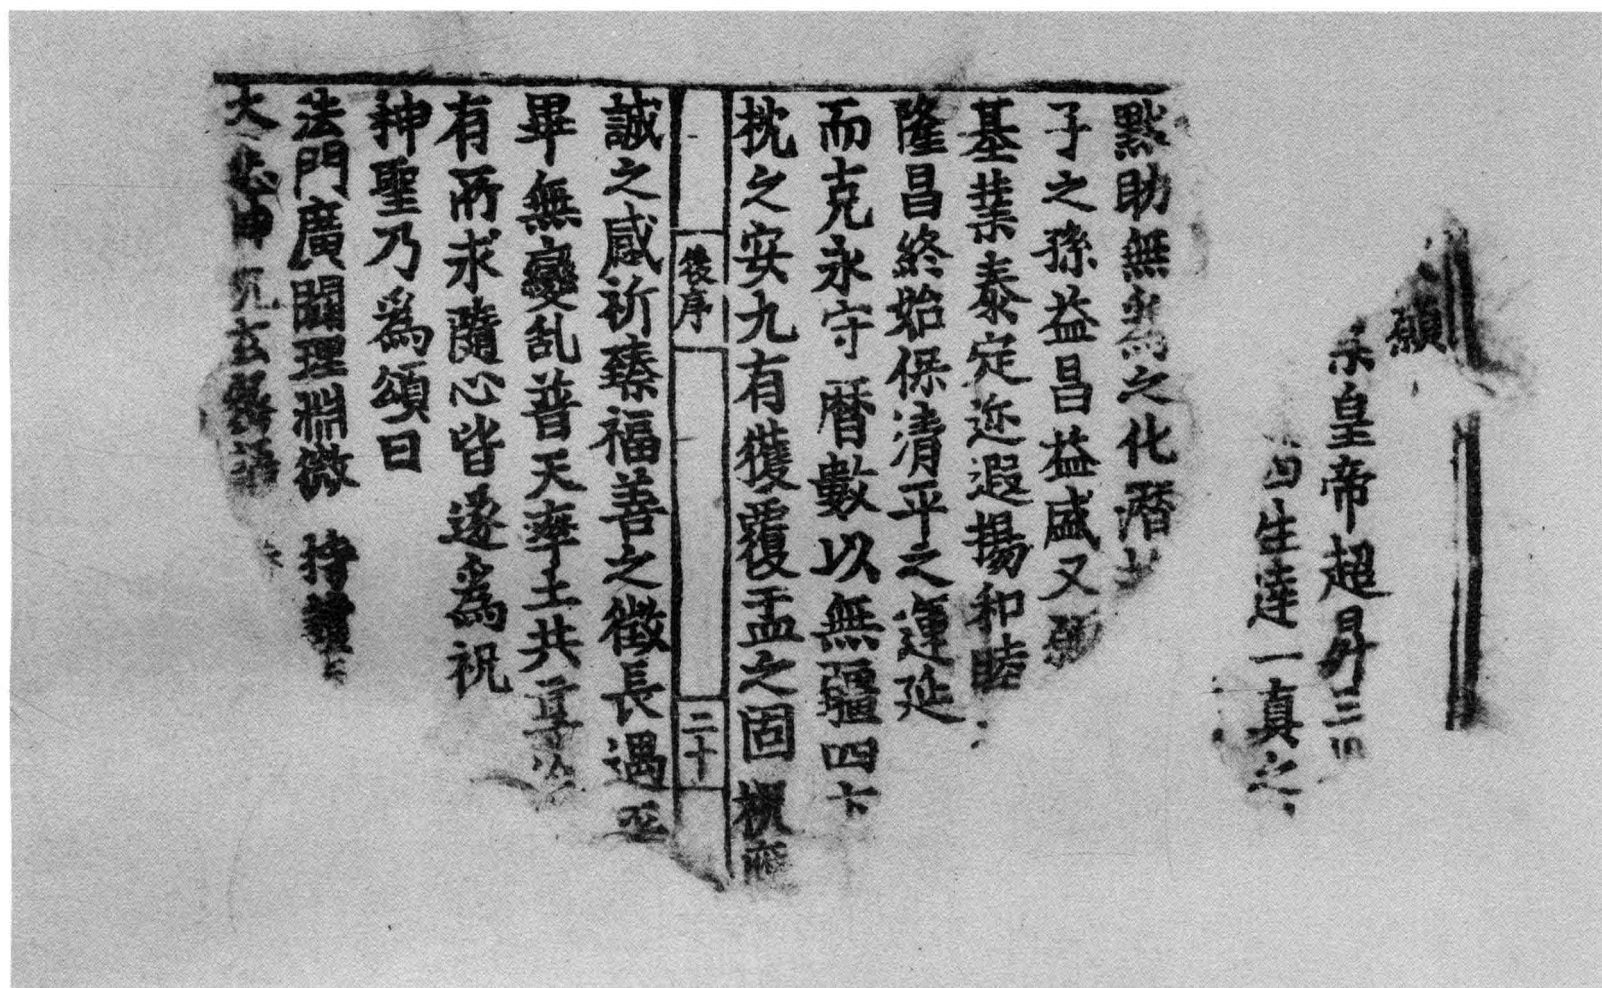 願
皇帝超昇三
四生達一真之
默助無為之化曆
子之孫益昌益盛又願
基業泰定迩遐揚和睦
隆昌終始保清平之運延
而克永守曆數以無疆四
枕之安九有獲覆盂之固櫬
後序
三十
誠之感祈臻福善之徵長遇平
畢無變乱普天率土共享
有所求隨心皆遂為祝
神聖乃為頌曰
法門廣闢理淵微持
大悲神咒玄